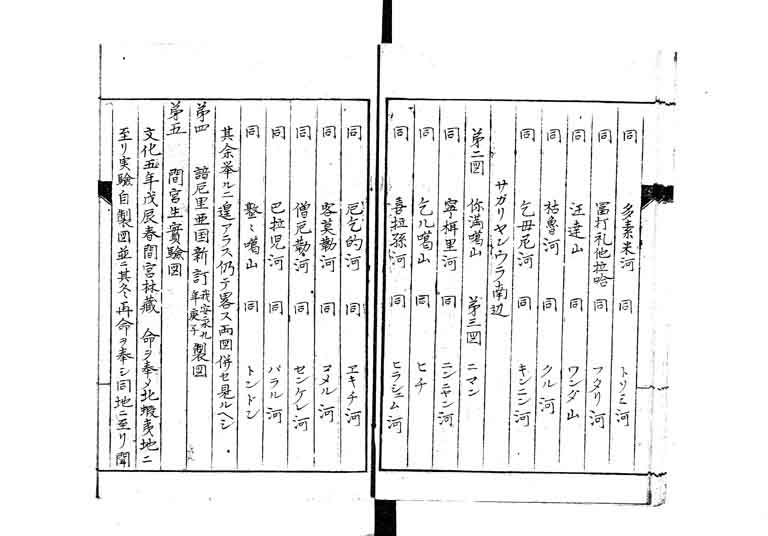 同 多素米河 同 トソミ河
同 冨打礼他拉哈 同 フタリ河
同 汪達山 同 ワンダ山
同 枯魯河 同 クル河
同 乞毋尼河 同 キンニン河
サガリヤンウラ南辺
第二図 你満噶山 第三図 ニマン
同 寧梛里河 同 ニンニヤン河
同 乞ル噶山 同 ヒチ
同 喜拉孫河 同 ヒラシュム河
同 厄乞的河 同 ヱキチ河
同 客莫勒河 同 コメル河
同 僧厄勒河 同 センケレ河
同 巴拉児河 同 バラル河
同 墪〻噶山 同 トンドン
其余挙ルニ遑アラス仍テ畧ス両図併セ見ルヘシ
第四 諳厄里亜国新訂 我安永九年庚子 製図
第五 間宮生實驗図
文化五年戊辰春間宮林藏 命ヲ奉メ北蝦夷地ニ
至リ実驗自製図並ニ其冬再命ヲ奉シ同地ニ至リ聞